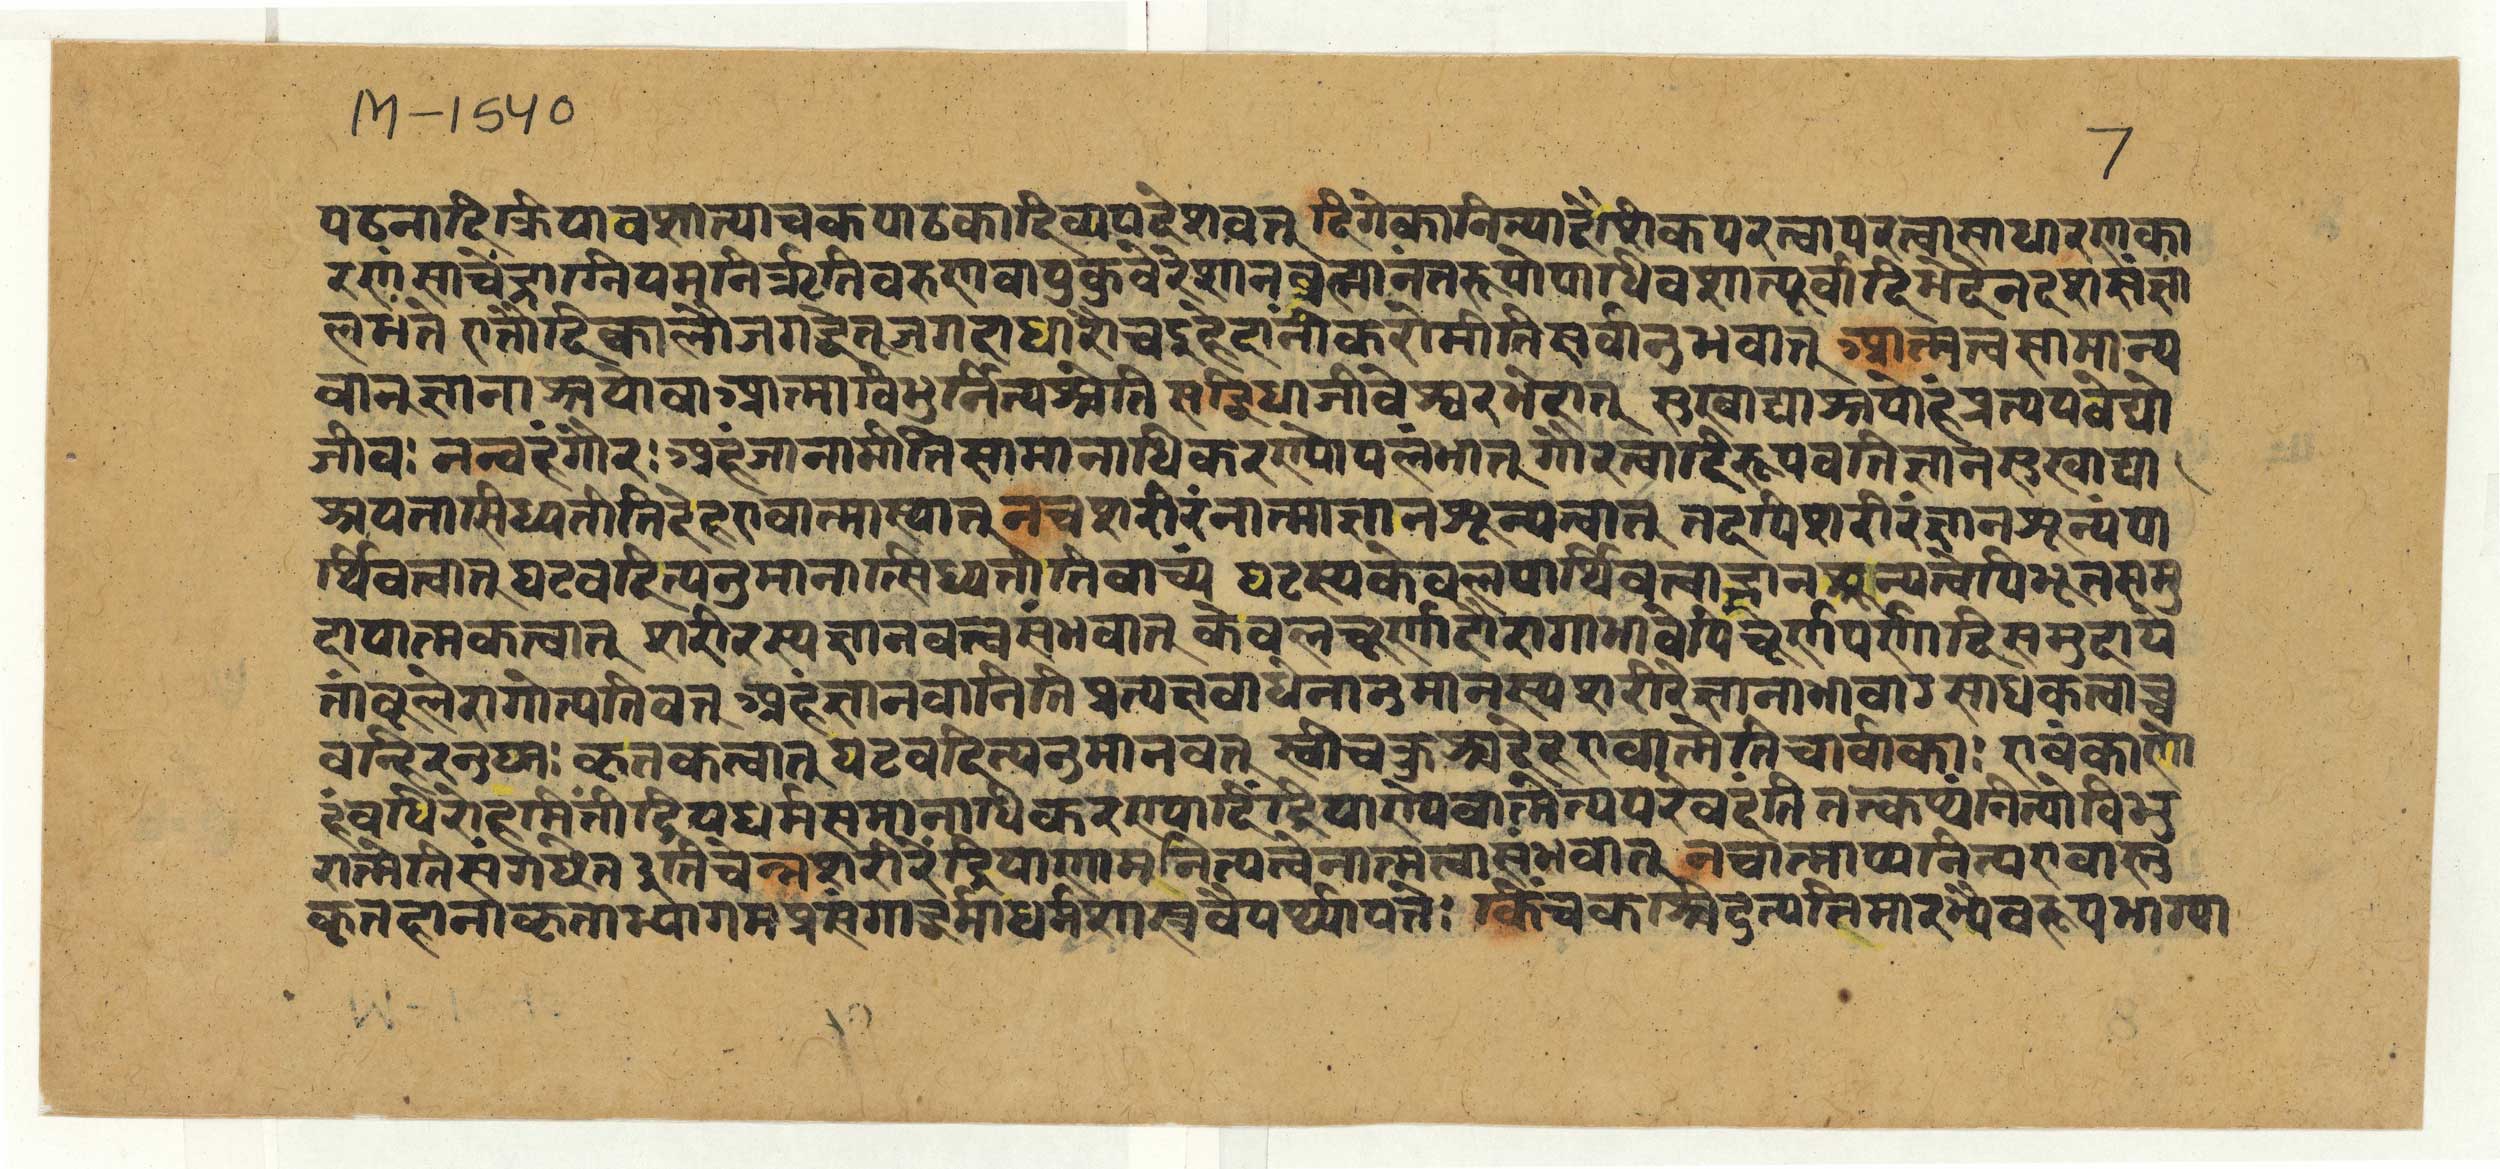 M-1540
7
पठनादिक्रियावशात्याचकपाठकादिव्यपदेशवत् दिगेकानित्यादैशिकपरत्वापरत्वासाधारणका
रणं साचेंद्राग्नियमनिर्ऋतिवरुणवायुकुबेरेशानब्रह्मानंतरूपोपाधिवशात्पूर्वादिभेदेनदशसंज्ञा
लभते एतौदिक्कालौजगद्धेतूजगदाधारौचइहेदानींकरोमीतिसर्वानुभवात् आत्मत्वसामान्य
वान् ज्ञानाश्रयोवाआत्माविभुर्नित्यश्चेति सद्विधाजीवेश्वरभेदात् सुखाद्याश्रयोहंप्रत्ययवेद्यो
जीवः नन्वहंगौरः अहंजानामीतिसामानाधिकरण्योपलंभात् गौरत्वादिरूपवतिज्ञानसुखाद्या
श्रयतासिध्यतीतिदेहएवात्मास्यात् नचशरीरंनात्माज्ञानशून्यत्वात् तदपिशरीरंज्ञानशून्यंपा
र्थिवत्वात् घटवदित्यनुमानात्सिध्यतीतिवाच्यं घटस्यकेवलपार्थिवत्वाज्ज्ञानशून्यत्वेपिभूतसमु
दायात्मकत्वात् शरीरस्यज्ञानवत्त्वसंभवात् केवलचूर्णादौरागाभावेपिचूर्णपर्णादिसमुदाये
तांबूलेरागोत्पतिवत् अहंज्ञानवानितिप्रत्यक्षबाधेनानुमानस्यशरीरेज्ञानाभावाऽसाधकत्वाच्च
वन्हिरनुष्णः कृतकत्वात् घटवदित्यनुमानवत् देहएवात्मेतिचार्वाकाः एवंकाणो
हंबधिरोहमितींद्रियधर्मसमानाधिकरण्यादिंद्रियाण्येवात्मेत्यपरेवदंति तत्कथंनित्योविभु
रात्मेतिसंगछेत इतिचेन्नशरीरेंद्रियाणामनित्यत्वेनात्मत्वासंभवात् नचात्माप्यनित्यएवास्तु
कृतहानाकृताभ्यागमप्रसंगाद्धर्माधर्मशास्त्रवैयर्थ्यापत्तेः किंचकश्चिदुत्पत्तिमारभ्यैवरूपभाग्या